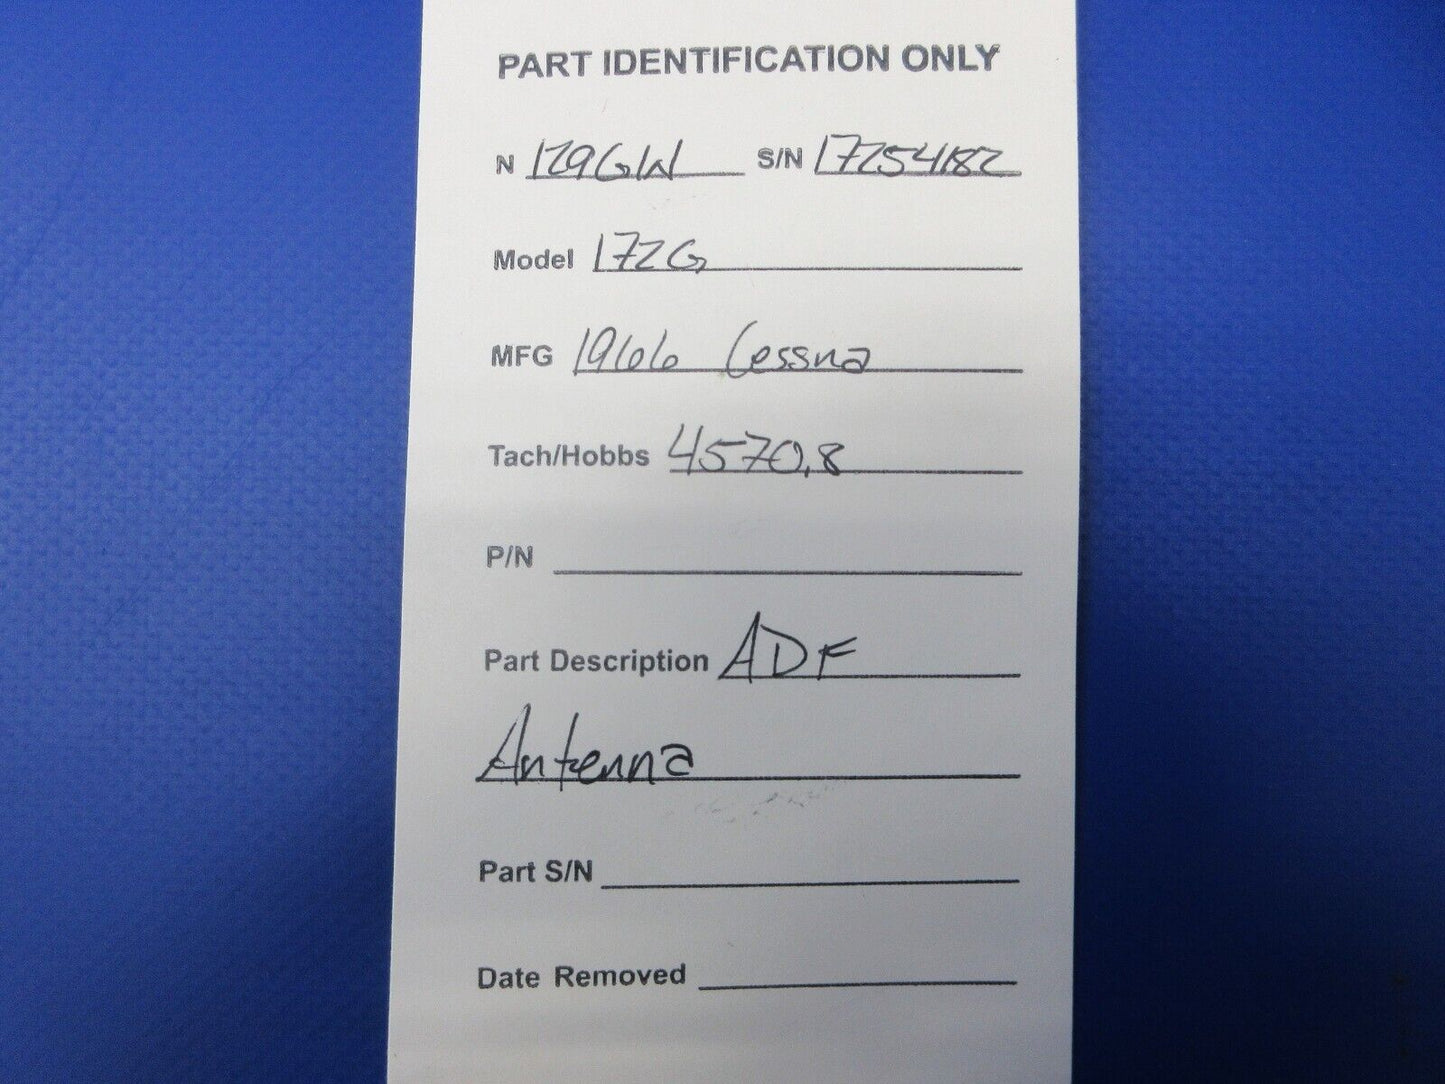 PART IDENTIFICATION ONLY
N 129GW S/N 17254182
Model 172G
MFG 1966 Cessna
Tach/Hobbs 4570.8
P/N
Part Description ADF
Antenna
Part S/N
Date Removed